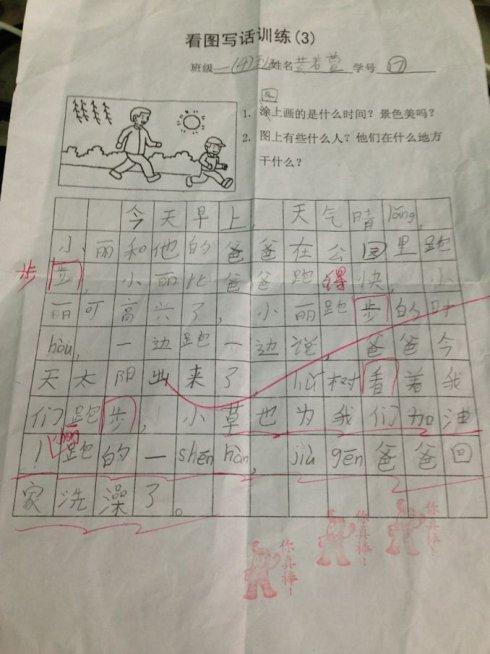 看图写话训练(3)
班级 一(4)班 姓名 黄若萱 学号 17
1. 涂上画的是什么时间？景色美吗？
2. 图上有些什么人？他们在什么地方
干什么？
今天早上，天气晴lǎng，
小丽和他的爸爸在公园里跑
步 步，小丽比爸爸跑得快，小
丽可高兴了，小丽跑步的时
hòu，一边跑一边说，爸爸今
天太阳出来了，树看着我
们跑步，小草也为我们加油
！小丽跑的一shēn hàn，jiù gēn爸爸回
家洗澡了。
你真棒！
你真棒！
你真棒！